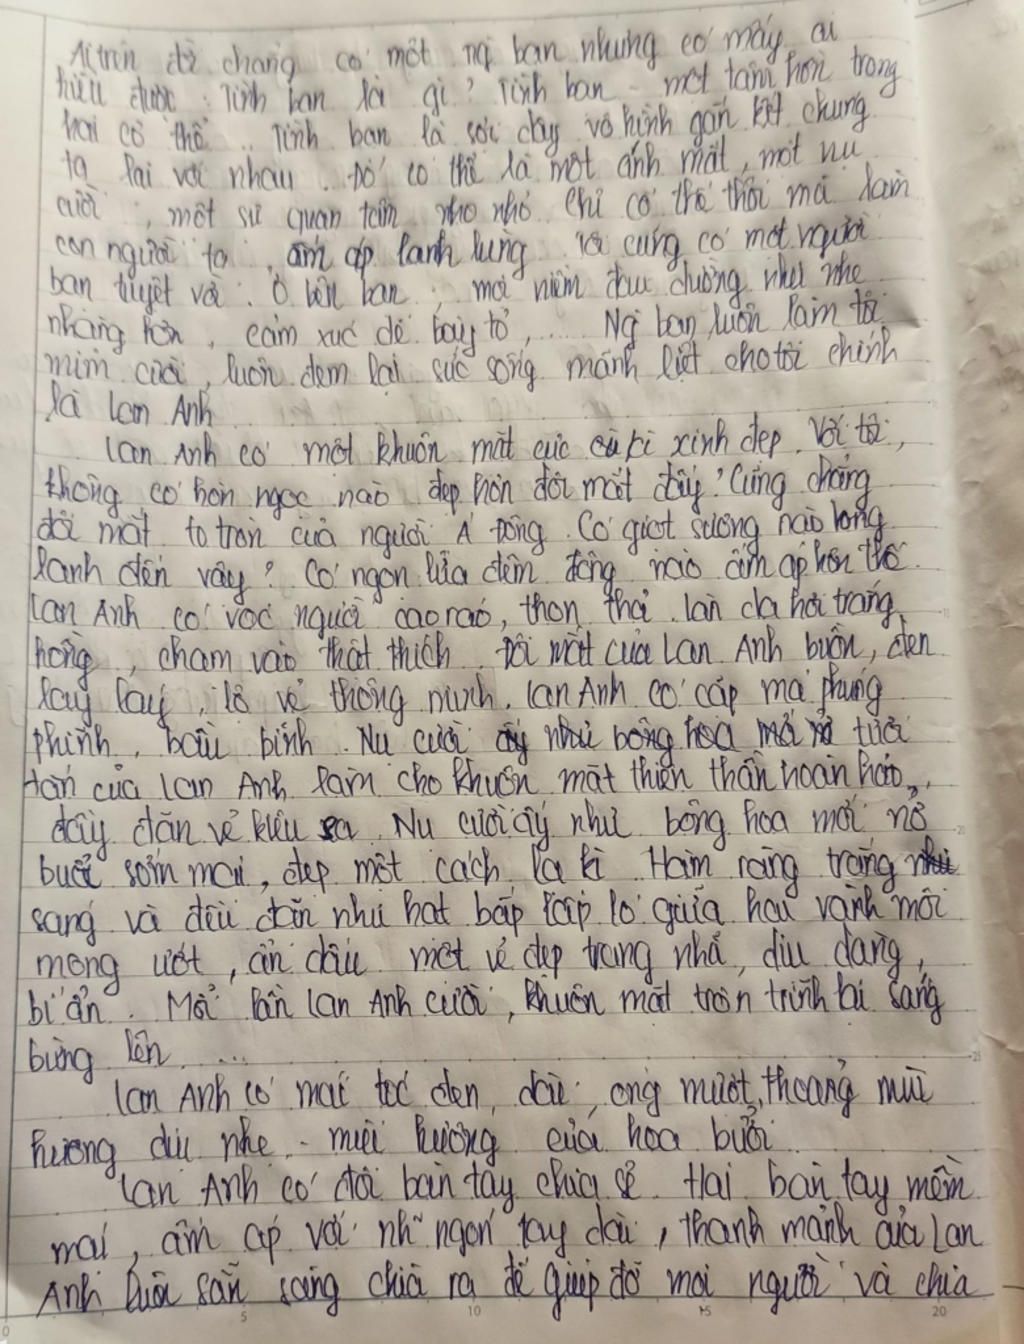 Ai trên đời chẳng có một ng bạn nhưng có mấy ai
hiểu được : Tình bạn là gì ? Tình bạn - một tâm hồn trong
hai cơ thể .. Tình bạn là sợi dây vô hình gắn kết chúng
ta lại với nhau . Đó có thể là một ánh mắt , một nụ
cười , một sự quan tâm nho nhỏ chỉ có thế thôi mà làm
con người ta , ấm áp lạnh lùng . Tôi cũng có một người
bạn tuyệt vời . Ở bên bạn , mọi niềm đau dường như nhẹ
nhàng hơn , cảm xúc dễ bày tỏ , ..... Ng bạn luôn làm tôi
mỉm cười , luôn đem lại sức sống mãnh liệt cho tôi chính
là Lan Anh
Lan Anh có một khuôn mặt cực kì xinh đẹp . Với tôi ,
không có hòn ngọc nào đẹp hơn đôi mắt đấy ! Cũng chẳng
đôi mắt to tròn của người Á Đông . Có giọt sương nào long
lanh đến vậy ? Có ngọn lửa đêm đông nào ấm áp hơn thế .
Lan Anh có vóc người cao ráo , thon thả . làn da hơi trắng
hồng , chạm vào thật thích . Đôi mắt của Lan Anh buồn , đen
lay láy , lộ vẻ thông minh . Lan Anh có cặp má phúng
phính , bầu bĩnh . Nụ cười ấy như bông hoa mới nở tươi
tắn của Lan Anh làm cho khuôn mặt thiên thần hoàn hảo ,
đầy đặn vẻ kiêu sa . Nụ cười ấy như bông hoa mới nở
buổi sớm mai , đẹp một cách lạ kì . Hàm răng trắng
sáng và đều đặn như hạt bắp lấp ló giữa hai vành môi
mọng ướt , ẩn dấu một vẻ đẹp trang nhã , dịu dàng ,
bí ẩn . Mỗi lần Lan Anh cười , khuôn mặt tròn trĩnh lại sáng
bừng lên ....
Lan Anh có mái tóc đen , dài , óng mượt , thoảng mùi
hương dịu nhẹ - mùi hương của hoa bưởi
Lan Anh có đôi bàn tay chia sẻ . Hai bàn tay mềm
mại , ấm áp với nh~ ngón tay dài , thanh mảnh của Lan
Anh luôn sẵn sàng chìa ra để giúp đỡ mọi người và chia